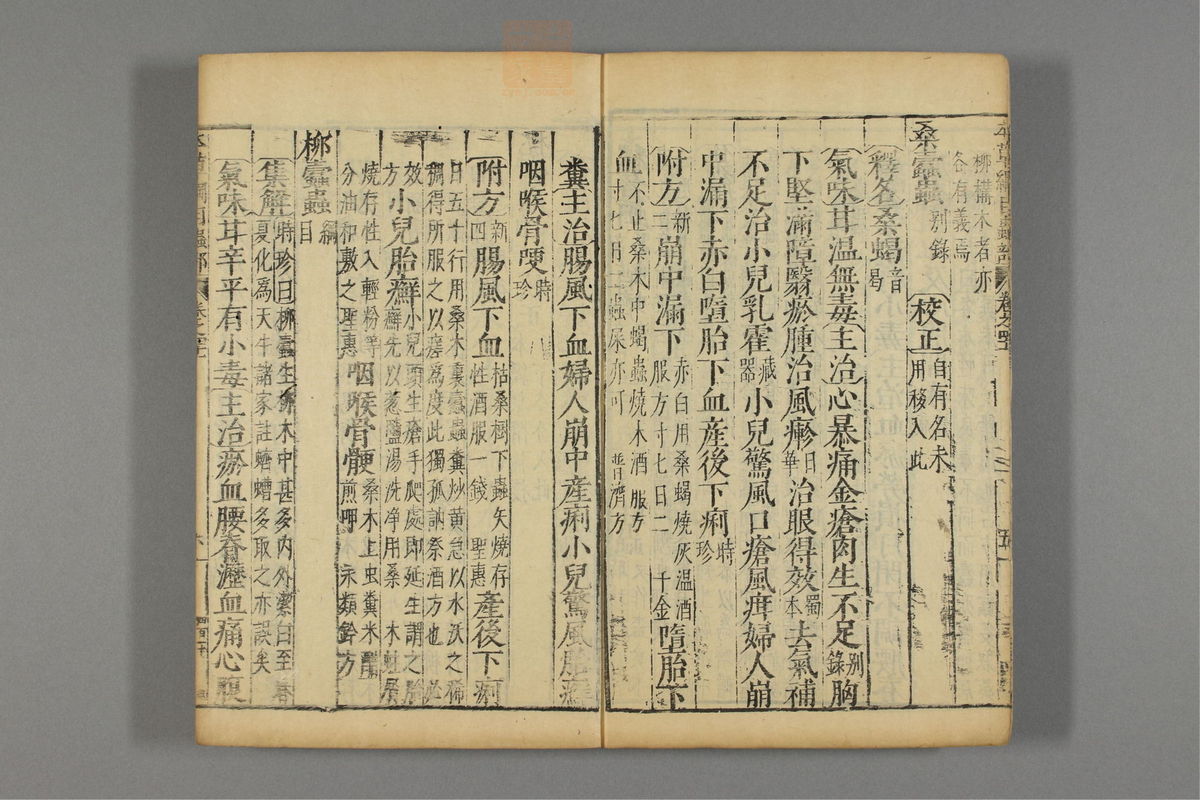 柳構木者亦
各有義焉
桑蠹蟲 别錄 校正 自有名未
用移入此
釋名 桑蝎 音
曷
氣味 甘溫無毒 主治 心暴痛金瘡肉生不足 别
錄 胸
下堅滿障翳瘀腫治風瘮 日
華 治眼得效 獨
本 去氣補
不足治小兒乳霍 藏
器 小兒驚風口瘡風疳婦人崩
中漏下赤白墮胎下血産後下痢 時
珍
附方 新
二 崩中漏下 赤白用桑蝎燒灰温酒
服方寸七日二 千金 墮胎下
血 不止桑木中蝎蟲燒末酒服方
寸七用二蟲屎亦可 普濟方
糞 主治 腸風下血婦人崩中産痢小兒驚風胎癬
咽喉骨哽 時
珍
附方 新
四 腸風下血 枯桑樹下蟲矢燒存
性酒服一錢 聖惠 産後下痢
日五十行用桑木裏蠹蟲糞炒黄急以水沃之稀
稠得所服之以瘥爲度此獨孤訥祭酒方也 必
效
方 小兒胎癬 小兒頭生瘡手爬處即延生謂之胎
癬先以葱鹽湯洗净用桑木蛀屑
燒存性入輕粉等
分油和敷之 聖惠 咽喉骨骾 桑木上虫糞米醋
煎呷 永類鈐方
柳蠹蟲 綱
目
集解 時珍曰柳蠹生柳木中甚多内外潔白至春
夏化爲天牛諸家註蠐螬多取之亦誤矣
氣味 甘辛平有小毒 主治 瘀血腰脊瀝血痛心腹